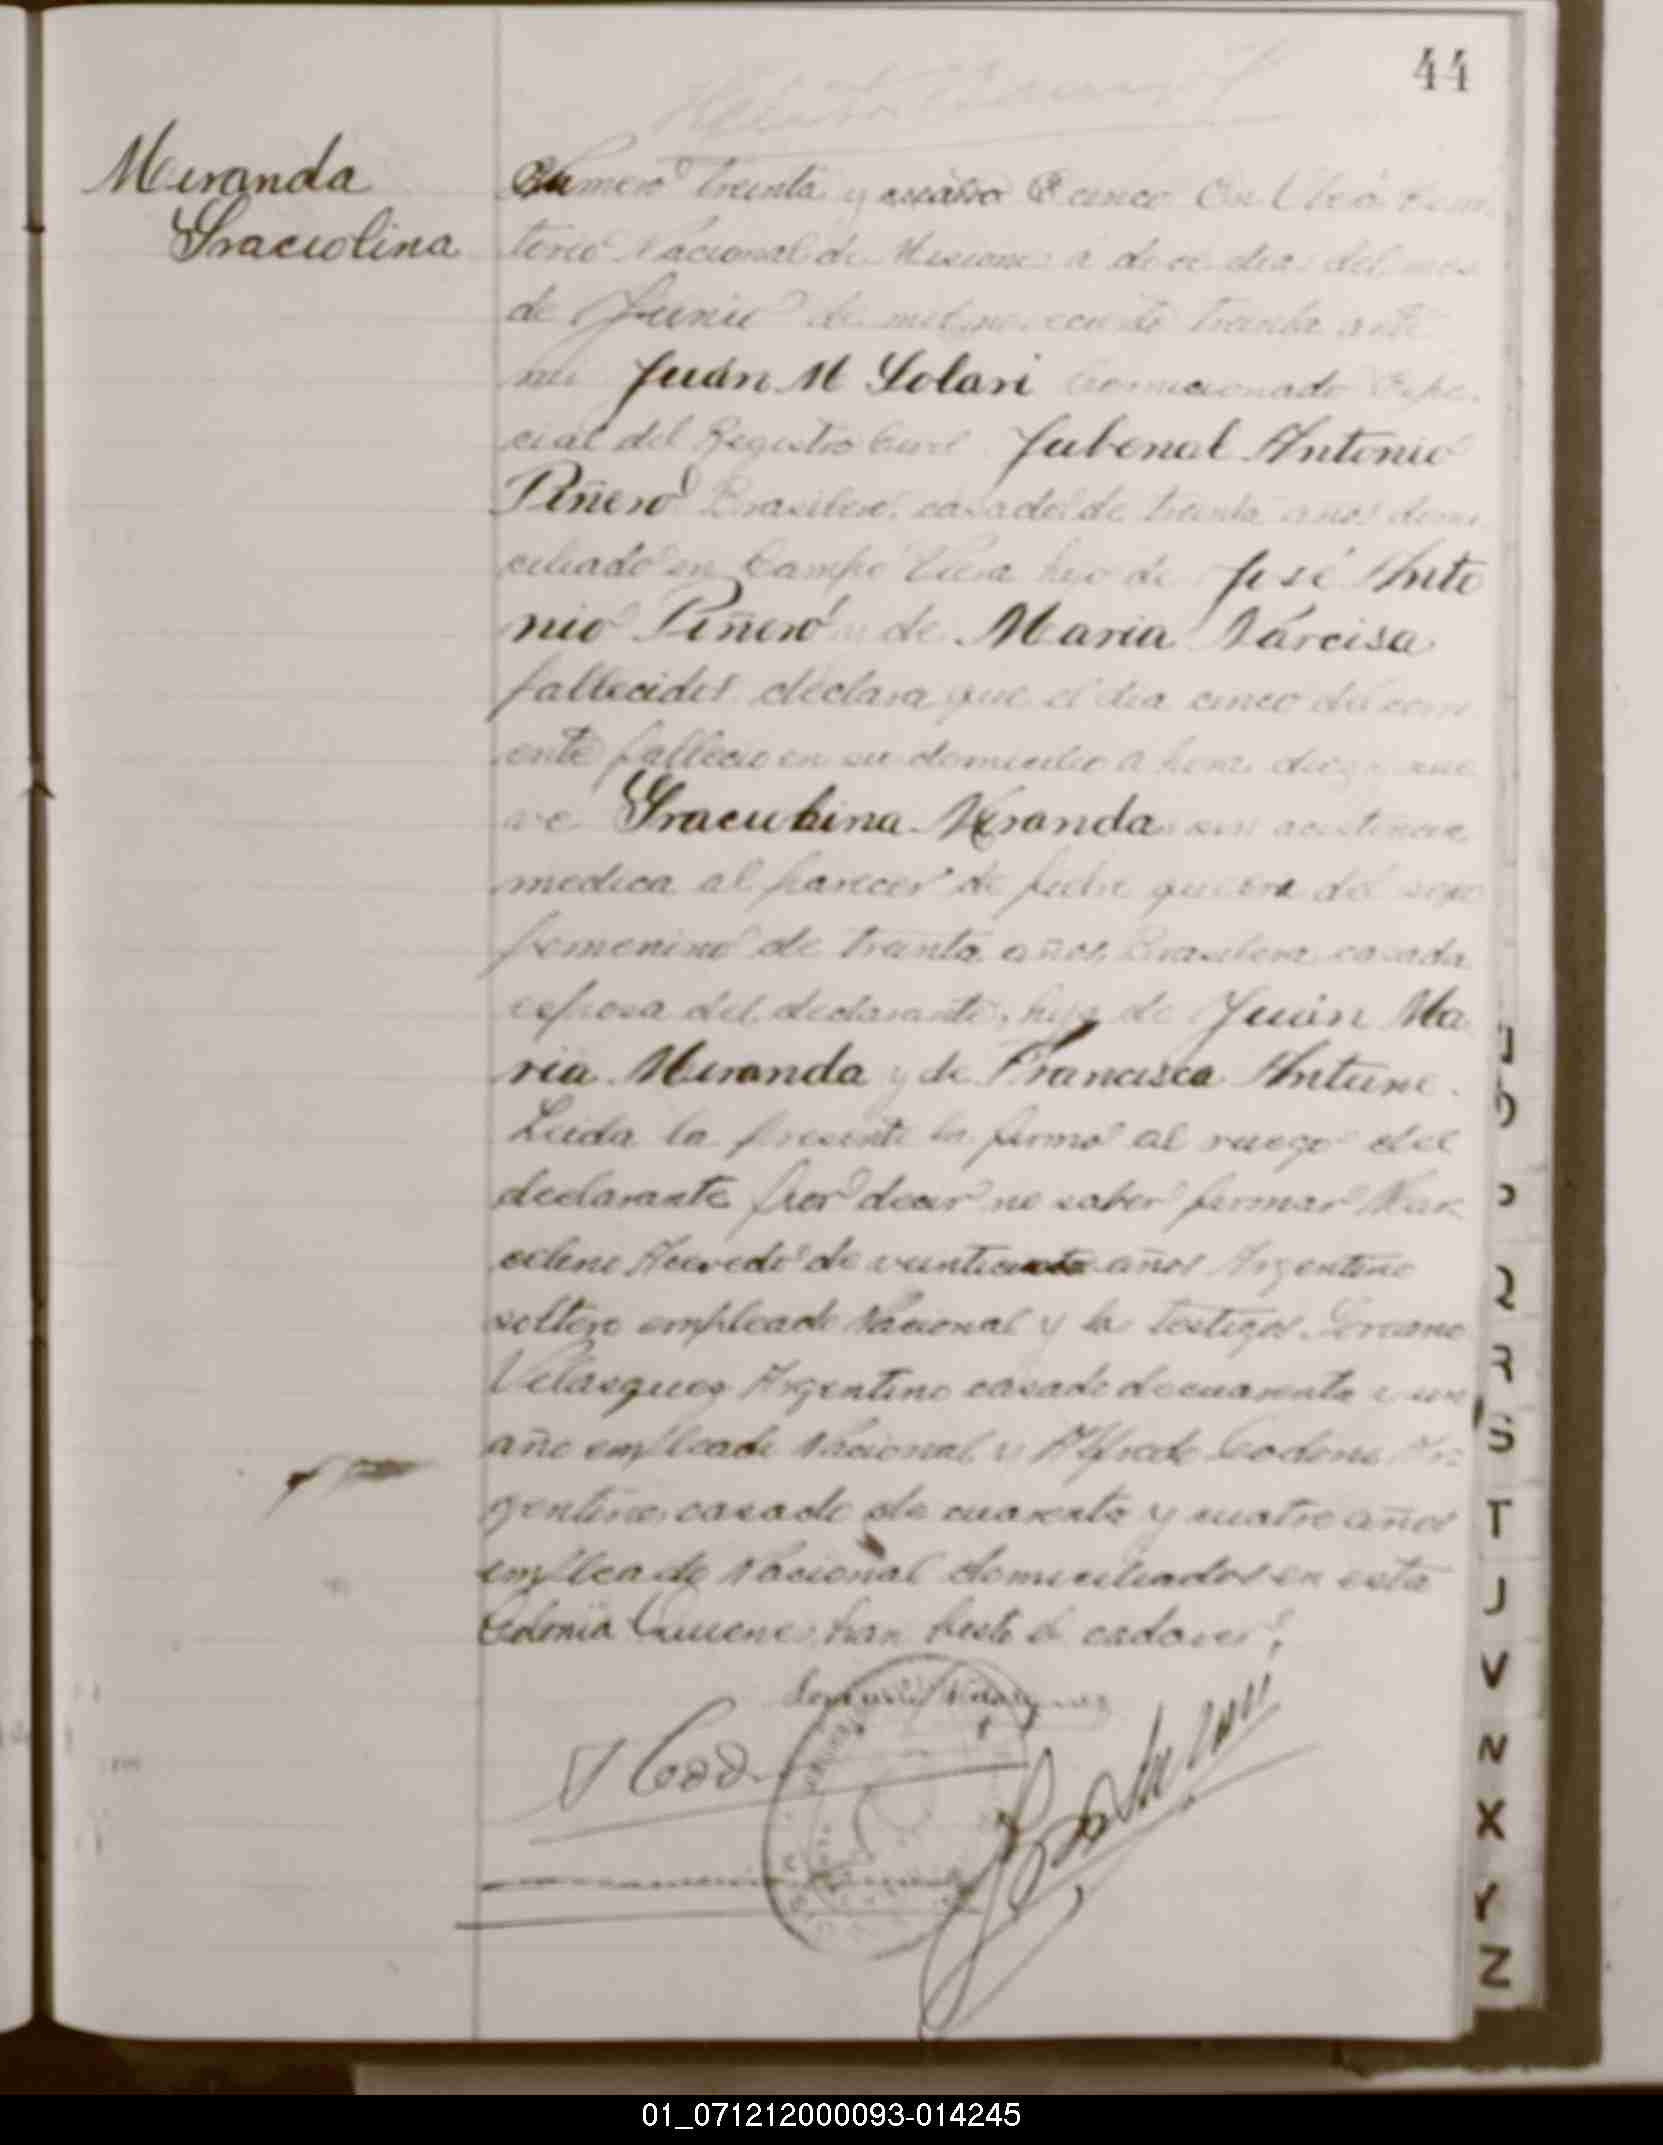 44
Miranda
Graciolina
Numero treinta y cuatro cinco En Oberá Terri
torio Nacional de Misiones a doce dias del mes
de Junio de mil novecientos treinta ante
mi Juán M Solari Comicionado Espe
cial del Registro Civil Jubenal Antonio
Piñero Brasilero, casado de treinta años domi
ciliado en Campo Viera hijo de José Anto
nio Piñero y de Maria Nárcisa
fallecidos declara que el dia cinco del corri
ente fallecio en su domicilio a hora diez y nue
ve Miranda sin acistencia
medica al parecer de fiebre que era del sexo
femenino de treinta años Brasilera casada
esposa del declarante, hija de Juán Ma
ria Miranda y de Francisca Antune.
Leida la presente la firmó al ruego del
declarante por decir no saber firmar Mar
celino Acevedo de años Argentino
soltero empleado Nacional y los testigos
Velasquez Argentino casado de cuarenta y un
año empleado Nacional y Alfredo Ar
gentino casado de cuarenta y cuatro años
empleado Nacional domiciliados en esta
Colonia han visto el cadaver.
Q
R
S
T
J
V
N
X
Y
Z
01_071212000093-014245